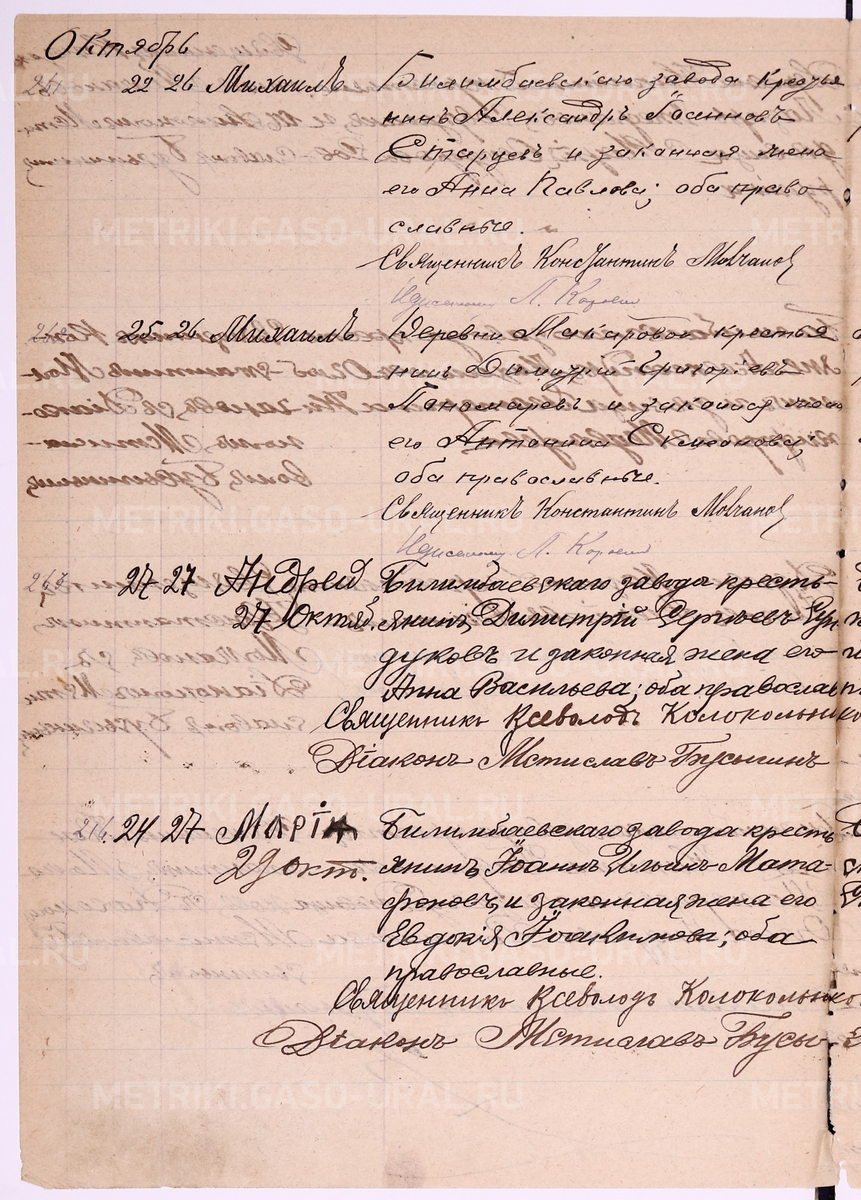 Октябрь
22 26 Михаилъ Билимбаевскаго завода крестья
нинъ Александръ Іоанновъ
Старцевъ и законная жена
его Анна Павлова; оба право
славные.
Священникъ Константинъ Молчанов
Псаломщ. Л.
25 26 Михаилъ Деревни Макаровой крестья
нинъ Димитрий Григорьевъ
Пономаревъ и законная жена
его Антонина Симеонова;
оба православные.
Священникъ Константинъ Молчанов
Л.
27 27 Андрей Билимбаевскаго завода кресть-
27 Октяб. янинъ Димитрій Сергѣевъ Гун
дуковъ и законная жена его
Анна Васильева; оба православ
Священникъ Всеволодъ Колокольник
Діаконъ Мстиславъ Бусыгинъ
216. 24 27 Марія Билимбаевскаго завода кресть
29 окт. янинъ Іоаннъ Ильинъ Мата-
фоновъ и законная жена его
Евдокія Іоакимова; оба
православные.
Священникъ Всеволодъ Колокольнико
Діаконъ Мстиславъ Бусы-
METRIKI.GASO-URAL.RU